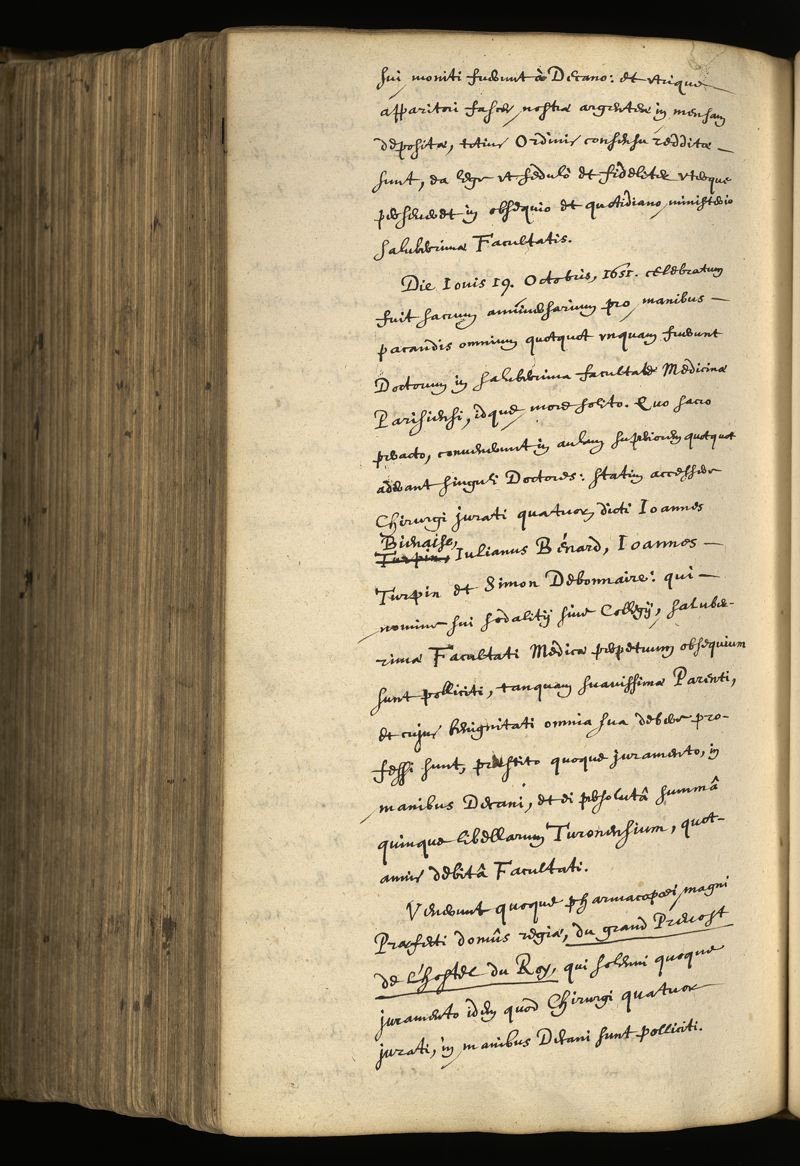 sui moniti fuerunt à Decano: et utrique
apparitori fasces nostræ argenteæ in mensam
depositæ, totius Ordinis consensu redditæ
sunt, ea lege ut sedulò et fideliter uterque
perseveret in obsequio et quotidiano ministerio
saluberrimæ Facultatis.
Die Iovis 19. Octobris, 1651. celebratum
fuit sacrum anniversarium pro manibus
pacandis omnium quotquot unquam fuerunt
Doctorum in saluberrima facultate Medicinæ
Parisiensi, idque more solito. Quo sacro
peracto, convenerunt in aulam superiorem quotquot
aderant singuli Doctores: statim accessere
Chirurgi jurati quatuor, dicti Ioannes
Bienaise,
Turpin, Iulianus Bénard, Ioannes
Turpin et Simon Debonnaire: qui
nomine sui sodalitij sive Collegij, saluber-
rimæ Facultati Medicæ perpetuum obsequium
sunt polliciti, tanquam suavissimæ Parenti,
et cujus benignitati omnia sua debere pro-
fessi sunt, præstito quoque juramento, in
manibus Decani, et ei persolutâ summâ
quinque libellarum Turonensium, quot-
annis debitâ Facultati.
Venerunt quoque pharmacopœi magni
Præfecti domûs regiæ, du grand Prevost
de l'hostel du Roy, qui solemni quoque
juramento idem quod Chirurgi quatuor
jurati, in manibus Decani sunt polliciti.